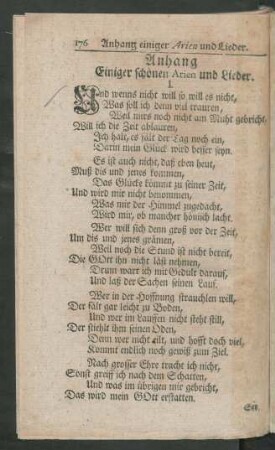 176 Anhang einiger Arien und Lieder.
Anhang
Einiger schönen Arien und Lieder.
I.
Und wenns nicht will so will es nicht,
Was soll ich denn viel trauren,
Weil mirs noch nicht am Muht gebricht,
Will ich die Zeit ablauren,
Ich halt, es sält der Tag noch ein,
Darin mein Glück wird besser seyn.
Es ist auch nicht, daß eben heut,
Muß dis und jenes kommen,
Das Glücke kömmt zu seiner Zeit,
Und wird mir nicht benommen,
Was mir der Himmel zugedacht,
Wird mir, ob mancher hönisch lacht.
Wer will sich denn groß vor der Zeit,
Um dis und jenes grämen,
Weil noch die Stund ist nicht bereit,
Die GOtt ihn nicht läst nehmen,
Drum wart ich mit Gedult darauf,
Und laß der Sachen seinen Lauf.
Wer in der Hoffnung strauchlen will,
Der fält gar leicht zu Boden,
Und wer im Lauffen nicht steht still,
Der stiehlt ihm seinen Oden,
Denn wer nicht eilt, und hofft doch viel,
Kommt endlich noch gewiß zum Ziel.
Nach grosser Ehre tracht ich nicht,
Sonst greiff ich nach dem Schatten,
Und was im übrigen mir gebricht,
Das wird mein GOtt erstatten.